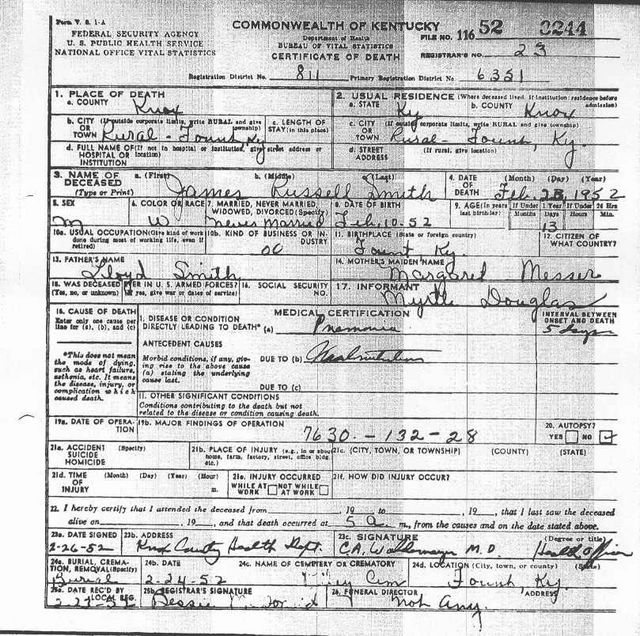 Form V. S. 1-A
FEDERAL SECURITY AGENCY
U. S. PUBLIC HEALTH SERVICE
NATIONAL OFFICE VITAL STATISTICS
COMMONWEALTH OF KENTUCKY
Department of Health
BUREAU OF VITAL STATISTICS
CERTIFICATE OF DEATH
FILE NO. 116 52 3244
REGISTRAR'S NO. 23
Registration District No. 811 Primary Registration District No. 6351
1. PLACE OF DEATH
a. COUNTY Knox
b. CITY (If outside corporate limits, write RURAL and give township) OR TOWN Rural - Fount, Ky
c. LENGTH OF STAY (in this place)
d. FULL NAME OF (If not in hospital or institution, give street address or location) HOSPITAL OR INSTITUTION
2. USUAL RESIDENCE (Where deceased lived. If institution: residence before admission)
a. STATE Ky b. COUNTY Knox
c. CITY (If outside corporate limits, write RURAL and give township) OR TOWN Rural - Fount, Ky.
d. STREET ADDRESS (If rural, give location)
3. NAME OF DECEASED (Type or Print) a. (First) b. (Middle) c. (Last)
James Russell Smith
4. DATE OF DEATH (Month) (Day) (Year) Feb. 23 1952
5. SEX M
6. COLOR OR RACE W
7. MARRIED, NEVER MARRIED, WIDOWED, DIVORCED (Specify) Never Married
8. DATE OF BIRTH Feb. 10-52
9. AGE (In years last birthday) If Under 1 Year Months Days 13 If Under 24 Hrs Hours Min.
10a. USUAL OCCUPATION (Give kind of work done during most of working life, even if retired)
10b. KIND OF BUSINESS OR INDUSTRY 00
11. BIRTHPLACE (State or foreign country) Fount Ky.
12. CITIZEN OF WHAT COUNTRY?
13. FATHER'S NAME Lloyd Smith
14. MOTHER'S MAIDEN NAME Margaret Messer
15. WAS DECEASED EVER IN U. S. ARMED FORCES? (Yes, no, or unknown) (If yes, give war or dates of service)
16. SOCIAL SECURITY NO.
17. INFORMANT Myrtle Douglas
18. CAUSE OF DEATH
Enter only one cause per line for (a), (b), and (c)
*This does not mean the mode of dying, such as heart failure, asthenia, etc. It means the disease, injury, or complication which caused death.
MEDICAL CERTIFICATION
INTERVAL BETWEEN ONSET AND DEATH
I. DISEASE OR CONDITION DIRECTLY LEADING TO DEATH* (a) Pnemonia 5 days
ANTECEDENT CAUSES
Morbid conditions, if any, giving rise to the above cause (a) stating the underlying cause last.
DUE TO (b)
DUE TO (c)
II. OTHER SIGNIFICANT CONDITIONS
Conditions contributing to the death but not related to the disease or condition causing death.
19a. DATE OF OPERATION
19b. MAJOR FINDINGS OF OPERATION
7630.-132-28
20. AUTOPSY? YES NO
21a. ACCIDENT SUICIDE HOMICIDE (Specify)
21b. PLACE OF INJURY (e.g., in or about home, farm, factory, street, office bldg. etc.)
21c. (CITY, TOWN, OR TOWNSHIP) (COUNTY) (STATE)
21d. TIME OF INJURY (Month) (Day) (Year) (Hour) m.
21e. INJURY OCCURRED WHILE AT WORK NOT WHILE AT WORK
21f. HOW DID INJURY OCCUR?
22. I hereby certify that I attended the deceased from , 19 to , 19 , that I last saw the deceased
alive on , 19 , and that death occurred at 5 a m., from the causes and on the date stated above.
23a. DATE SIGNED 2-26-52
23b. ADDRESS Knox County Health Dept.
23c. SIGNATURE (Degree or title) M.D. Health Officer
24a. BURIAL, CREMATION, REMOVAL (Specify) Burial
24b. DATE 2-24-52
24c. NAME OF CEMETERY OR CREMATORY Cem
24d. LOCATION (City, town, or county) (State) Fount, Ky.
25a. DATE REC'D BY LOCAL REG.
25b. REGISTRAR'S SIGNATURE Bessie
26. FUNERAL DIRECTOR Not Any